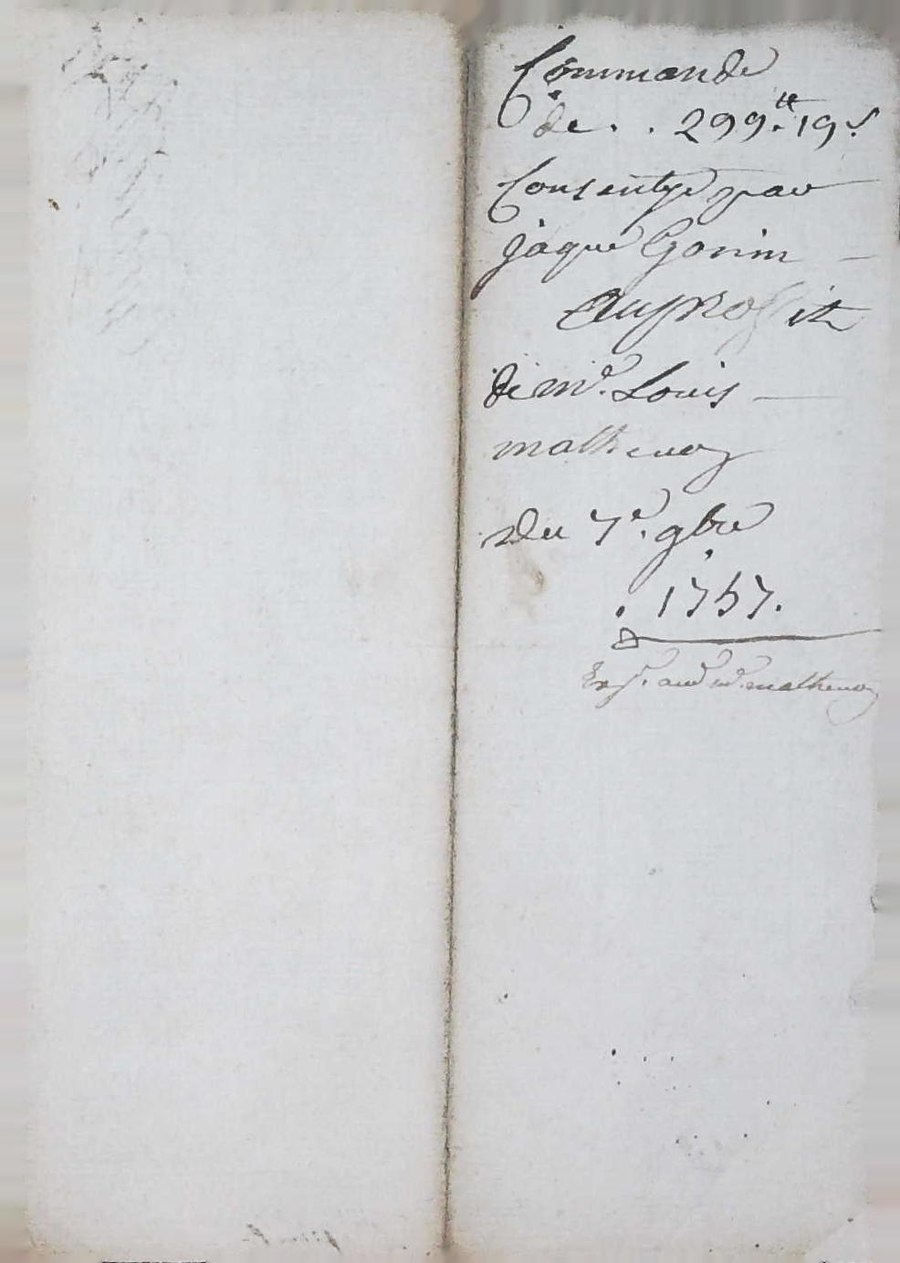 Commande
de . . 299.tt 19.s
Consentye par
Jaque Gonin
Au proffit
de Md. Louis
mathevoz
Du 7e. 9bre
. 1757.
Exp. aud. md. mathevoz